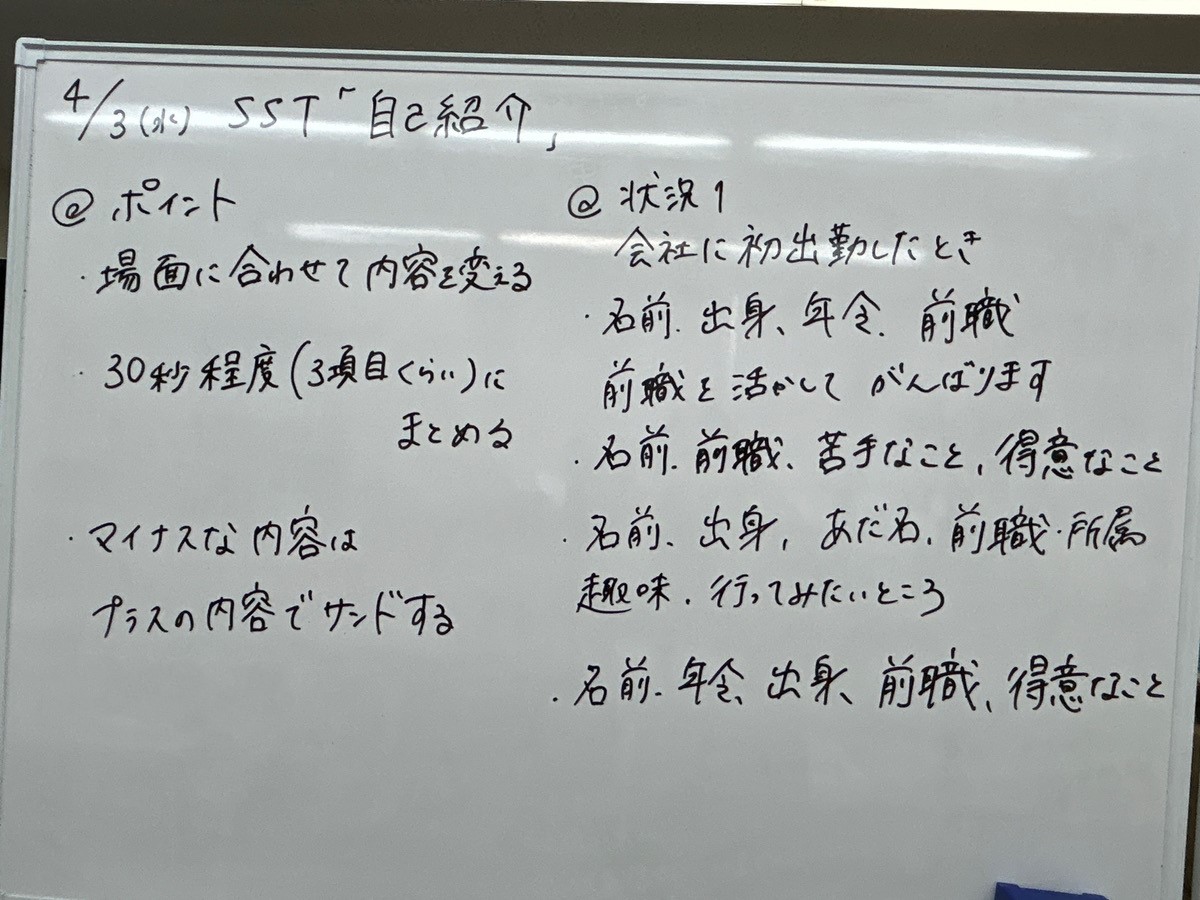 4/3(水) SST「自己紹介」
@ ポイント
・場面に合わせて内容を変える
・30秒程度(3項目くらい)に
まとめる
・マイナスな内容は
プラスの内容でサンドする
@ 状況1
会社に初出勤したとき
・名前、出身、年令、前職
前職を活かして がんばります
・名前、前職、苦手なこと、得意なこと
・名前、出身、あだ名、前職・所属
趣味、行ってみたいところ
・名前、年令、出身、前職、得意なこと